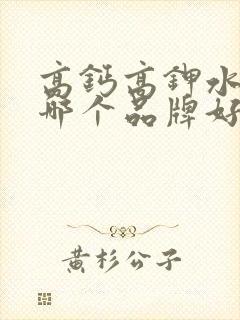 高钙高钾水
哪个品牌好
黄杉公子